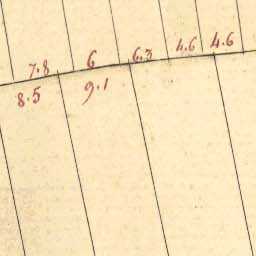 7.8 6 6.3 4.6 4.6
8.5 9.1